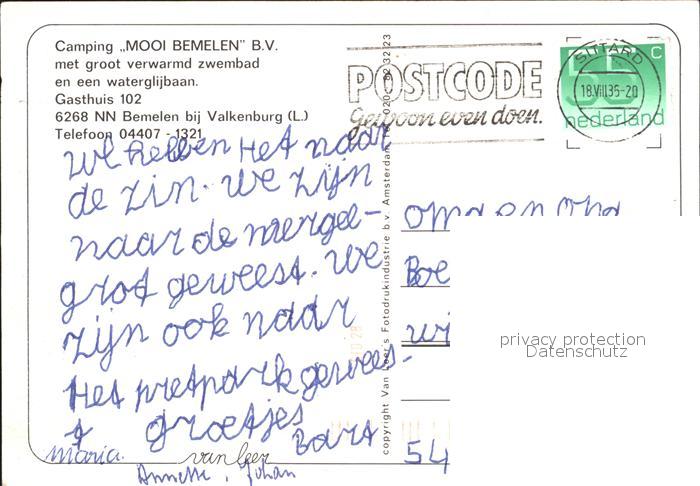 Camping „MOOI BEMELEN" B.V.
met groot verwarmd zwembad
en een waterglijbaan.
Gasthuis 102
6268 NN Bemelen bij Valkenburg (L.)
Telefoon 04407 - 1321
POSTCODE
Gewoon even doen.
SITTARD
18.VIII.85-20
55 c
nederland
We hebben Het naar
de zin. we zijn
naar de mergel-
grot geweest. we
zijn ook naar
Het pretpark gewees-
t groetjes
Bart
Maria. van leer
Annette, Johan
om en om
Boe
wi
54
copyright Van Leer's Fotodrukindustrie b.v. Amsterdam, Tel. 020
privacy protection
Datenschutz